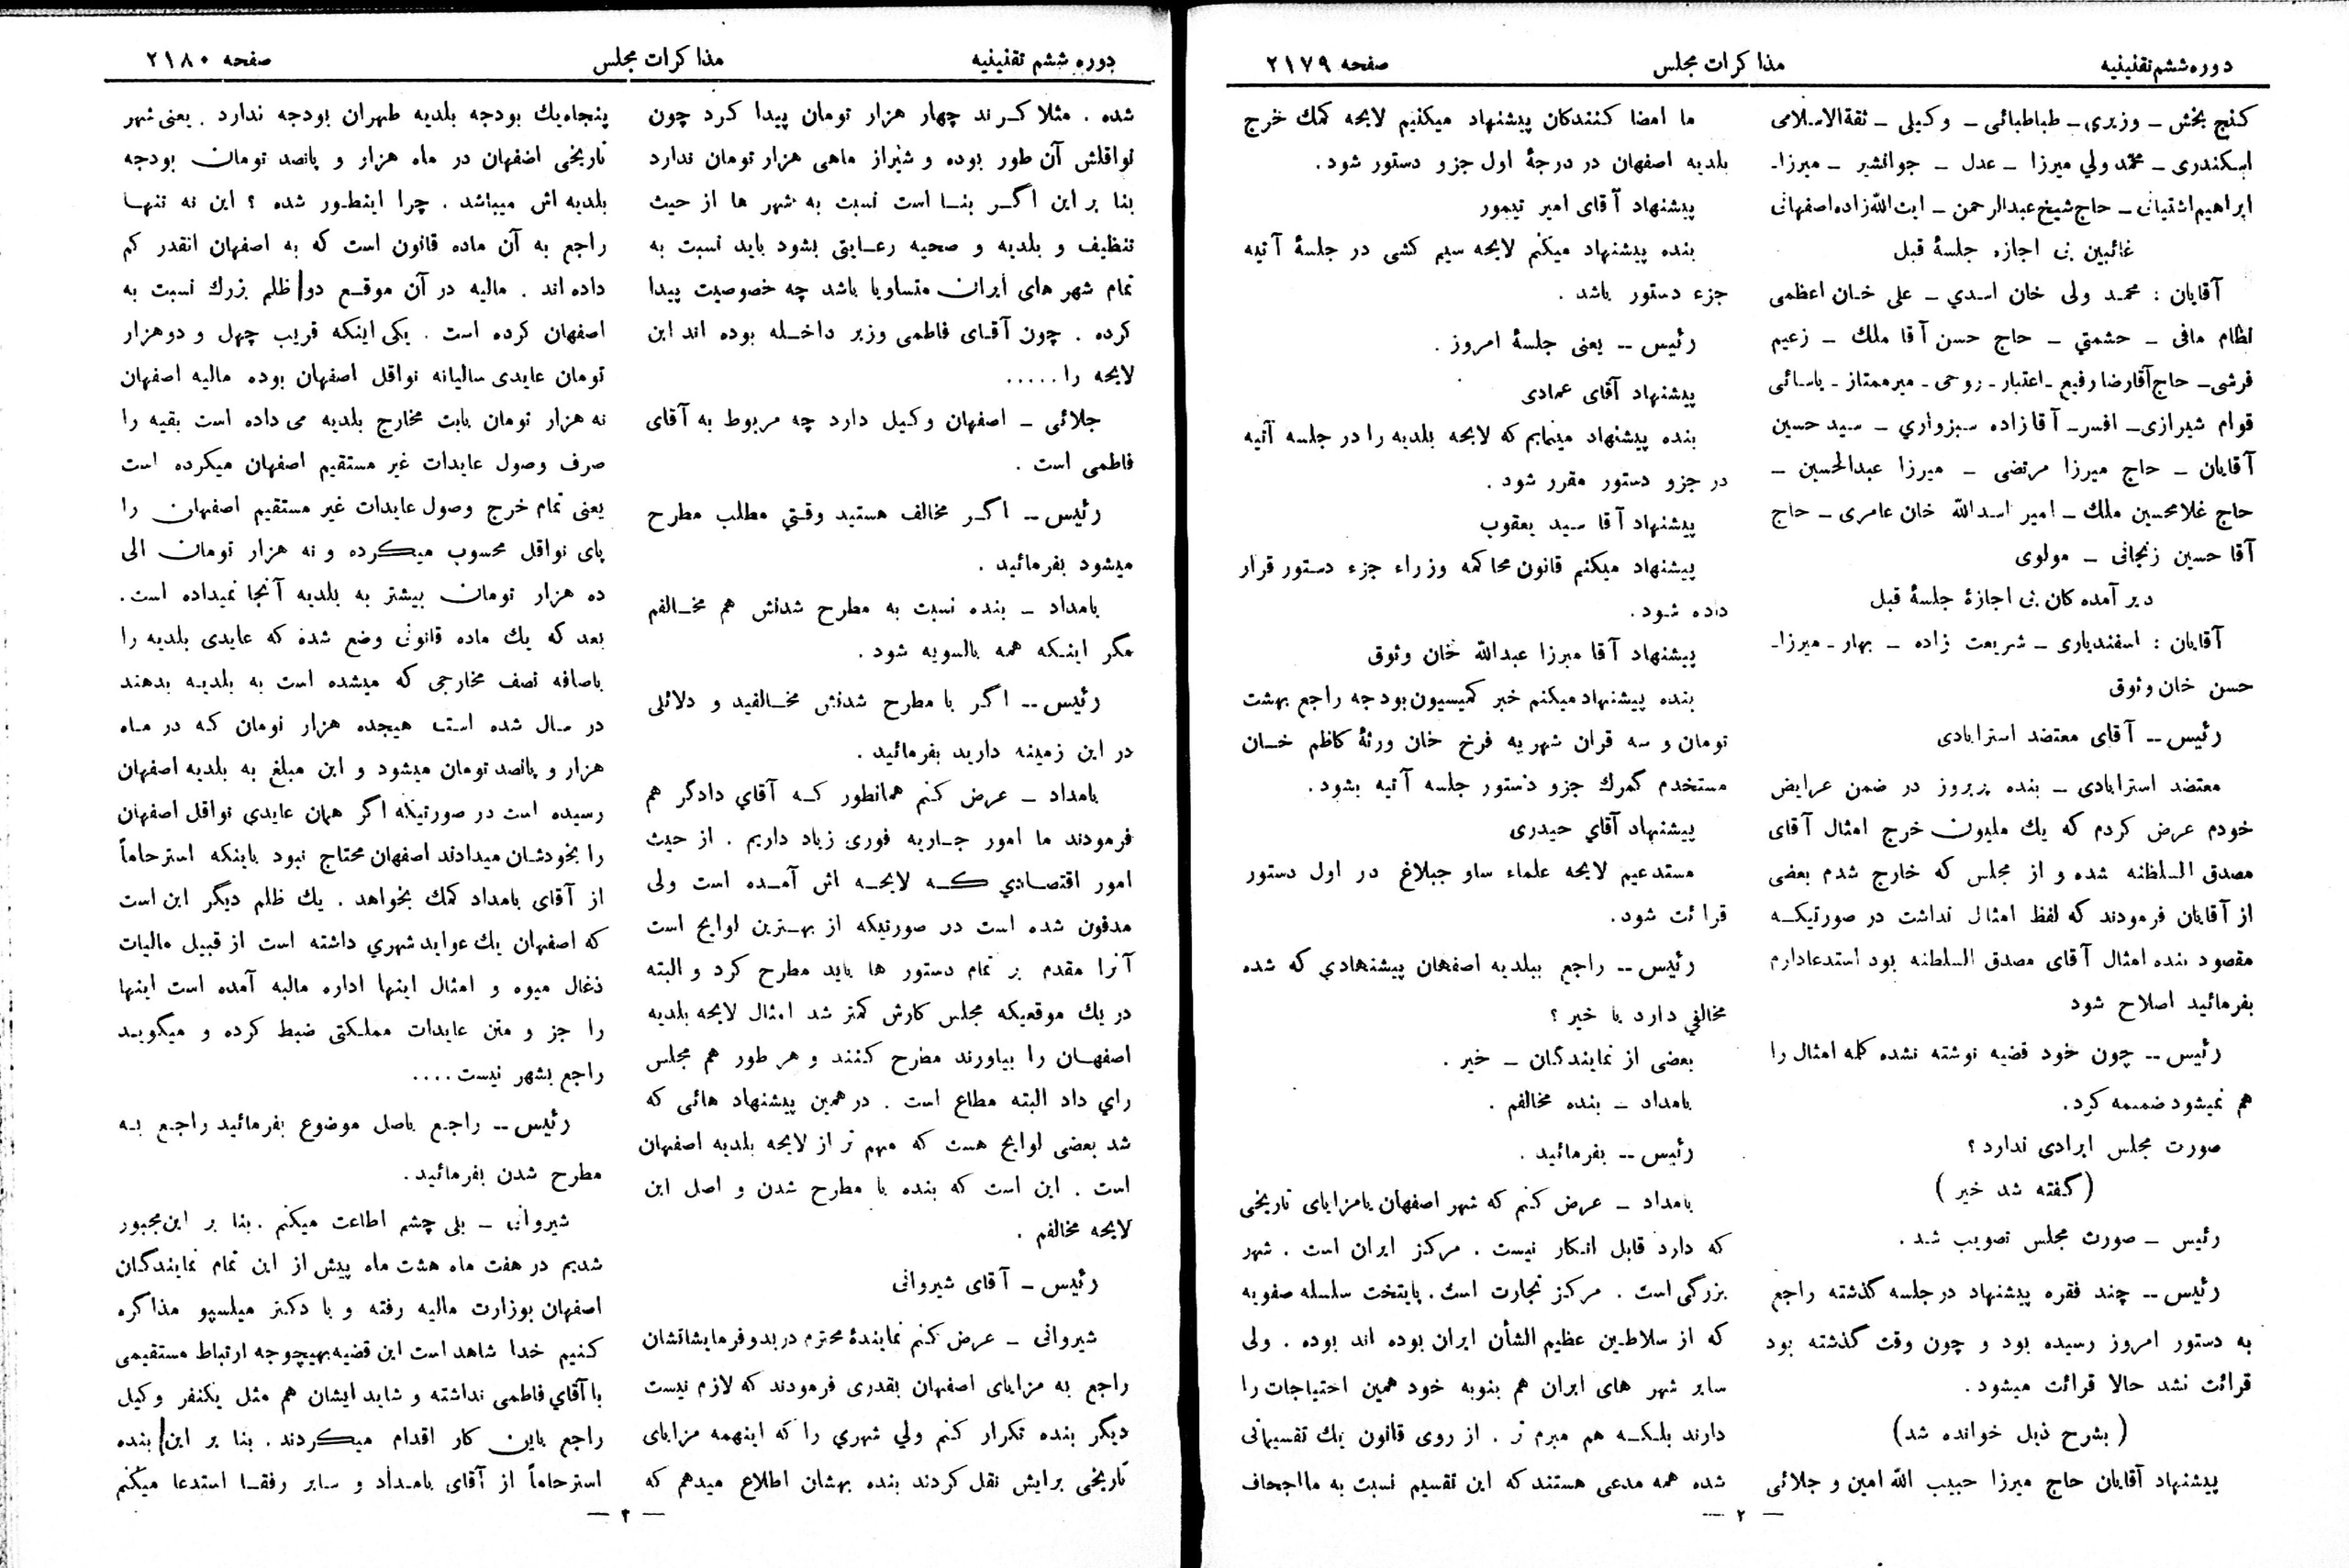 دوره ششم تقنینیه
مذاکرات مجلس
صفحه ۲۱۷۹
گنج بخش ـ وزیری ـ طباطبائی ـ وکیلی ـ ثقةالاسلامی
اسکندری ـ محمد ولی میرزا ـ عدل ـ جوانشیر ـ میرزاـ
ابراهیم اشتیانی ـ حاج شیخ عبدالرحمن ـ ایت‌الله زاده اصفهانی
غائبین بی اجازه جلسهٔ قبل
آقایان : محمد ولی خان اسدی ـ علی خان اعظمی
نظام مافی ـ حشمتی ـ حاج حسن آقا ملك ـ زعیم
فرشی ـ حاج آقا رضا رفیع ـ اعتبار ـ روحی ـ میر ممتاز ـ یاسائی
قوام شیرازی ـ افسر ـ آقا زاده سبزواری ـ سید حسین
آقایان ـ حاج میرزا مرتضی ـ میرزا عبدالحسین ـ
حاج غلامحسین ملك ـ امیر اسدالله خان عامری ـ حاج
آقا حسین زنجانی ـ مولوی
دیر آمده کان بی اجازهٔ جلسهٔ قبل
آقایان : اسفندیاری ـ شریعت زاده ـ بهار ـ میرزاـ
حسن خان وثوق
رئیس ــ آقای معتضد استرابادی
معتضد استرابادی ـ بنده پریروز در ضمن عرایض
خودم عرض کردم که یك ملیون خرج امثال آقای
مصدق السلطنه شده و از مجلس که خارج شدم بعضی
از آقایان فرمودند که لفظ امثال نداشت در صورتیکه
مقصود بنده امثال آقای مصدق السلطنه بود استدعا دارم
بفرمائید اصلاح شود
رئیس ــ چون خود قضیه نوشته نشده کله امثال را
هم نمیشود ضمیمه کرد.
صورت مجلس ایرادی ندارد ؟
( گفته شد خیر )
رئیس ـ صورت مجلس تصویب شد .
رئیس ــ چند فقره پیشنهاد در جلسه گذشته راجع
به دستور امروز رسیده بود و چون وقت گذشته بود
قرائت نشد حالا قرائت میشود .
( بشرح ذیل خوانده شد)
پیشنهاد آقایان حاج میرزا حبیب الله امین و جلائی
ما امضا کنندکان پیشنهاد میکنیم لایحه کمك خرج
بلدیه اصفهان در درجهٔ اول جزو دستور شود .
پیشنهاد آقای امیر تیمور
بنده پیشنهاد میکنم لایحه سیم کشی در جلسهٔ آتیه
جزء دستور باشد .
رئیس ــ یعنی جلسهٔ امروز .
پیشنهاد آقای عمادی
بنده پیشنهاد مینمایم که لایحه بلدیه را در جلسه آتیه
در جزو دستور مقرر شود .
پیشنهاد آقا سید یعقوب
پیشنهاد میکنم قانون محاکمه وزراء جزء دستور قرار
داده شود .
پیشنهاد آقا میرزا عبدالله خان وثوق
بنده پیشنهاد میکنم خبر کمیسیون بودجه راجع بهشت
تومان و سه قران شهریه فرخ خان ورثهٔ کاظم خان
مستخدم گمرك جزو دستور جلسه آتیه بشود .
پیشنهاد آقای حیدری
مستدعیم لایحه علماء ساوجبلاغ در اول دستور
قرائت شود.
رئیس ــ راجع ببلدیه اصفهان پیشنهادی که شده
مخالفی دارد یا خیر ؟
بعضی از نمایندگان ـ خیر .
یامداد ـ بنده مخالفم .
رئیس ــ بفرمائید .
یامداد ـ عرض کنم که شهر اصفهان یا مزایای تاریخی
که دارد قابل انکار نیست . مرکز ایران است . شهر
بزرگی است . مرکز تجارت است . پایتخت سلسله صفویه
که از سلاطین عظیم الشأن ایران بوده اند بوده . ولی
سایر شهر های ایران هم بنوبه خود همین احتیاجات را
دارند بلکه هم مبرم تر . از روی قانون یك تقسیماتی
شده همه مدعی هستند که این تقسیم نسبت به ما اجحاف
— ۲ —
دوره ششم تقنینیه
مذاکرات مجلس
صفحه ۲۱۸۰
شده . مثلا کرند چهار هزار تومان پیدا کرد چون
نواقلش آن طور بوده و شیراز ماهی هزار تومان ندارد
بنا بر این اگر بنا است نسبت به شهر ها از حیث
تنظیف و بلدیه و صحیه رعایتی بشود باید نسبت به
تمام شهر های ایران متساویا باشد چه خصوصیت پیدا
کرده . چون آقای فاطمی وزیر داخله بوده اند این
لایحه را .....
جلائی ـ اصفهان وکیل دارد چه مربوط به آقای
فاطمی است .
رئیس ــ اگر مخالف هستید وقتی مطلب مطرح
میشود بفرمائید .
یامداد ـ بنده نسبت به مطرح شدنش هم مخالفم
مگر اینکه همه بالسویه شود .
رئیس ــ اگر با مطرح شدنش مخالفید و دلائلی
در این زمینه دارید بفرمائید .
یامداد ـ عرض کنم همانطور که آقای دادگر هم
فرمودند ما امور جاریه فوری زیاد داریم . از حیث
امور اقتصادی که لایحه اش آمده است ولی
مدفون شده است در صورتیکه از بهترین لوایح است
آنرا مقدم بر تمام دستور ها باید مطرح کرد و البته
در یك موقعیکه مجلس کارش کمتر شد امثال لایحه بلدیه
اصفهان را بیاورند مطرح کنند و هر طور هم مجلس
رای داد البته مطاع است . در همین پیشنهاد هائی که
شد بعضی لوایح هست که مهم تر از لایحه بلدیه اصفهان
است . این است که بنده با مطرح شدن و اصل این
لایحه مخالفم .
رئیس ـ آقای شیروانی
شیروانی ـ عرض کنم نمایندهٔ محترم در بدو فرمایشاتشان
راجع به مزایای اصفهان بقدری فرمودند که لازم نیست
دیگر بنده تکرار کنم ولی شهری را که اینهمه مزایای
تاریخی برایش نقل کردند بنده بهشان اطلاع میدهم که
پنجاه یك بودجه بلدیه طهران بودجه ندارد . یعنی شهر
تاریخی اصفهان در ماه هزار و پانصد تومان بودجه
بلدیه اش میباشد . چرا اینطور شده ؟ این نه تنها
راجع به آن ماده قانون است که به اصفهان انقدر کم
داده اند . مالیه در آن موقع دو ظلم بزرك نسبت به
اصفهان کرده است . یکی اینکه قریب چهل و دو هزار
تومان عایدی سالیانه نواقل اصفهان بوده مالیه اصفهان
نه هزار تومان بابت مخارج بلدیه می داده است بقیه را
صرف وصول عایدات غیر مستقیم اصفهان میکرده است
یعنی تمام خرج وصول عایدات غیر مستقیم اصفهان را
پای نواقل محسوب میکرده و نه هزار تومان الی
ده هزار تومان بیشتر به بلدیه آنجا نمیداده است .
بعد که یك ماده قانونی وضع شده که عایدی بلدیه را
باضافه نصف مخارجی که میشده است به بلدیه بدهند
در سال شده است هیجده هزار تومان که در ماه
هزار و پانصد تومان میشود و این مبلغ به بلدیه اصفهان
رسیده است در صورتیکه اگر همان عایدی نواقل اصفهان
را بخودشان میدادند اصفهان محتاج نبود باینکه استرحاماً
از آقای یامداد کمك بخواهد . یك ظلم دیگر این است
که اصفهان یك عواید شهری داشته است از قبیل مالیات
ذغال میوه و امثال اینها اداره مالیه آمده است اینها
را جز و متن عایدات مملکتی ضبط کرده و میگوید
راجع بشهر نیست ....
رئیس ــ راجع باصل موضوع بفرمائید راجع به
مطرح شدن بفرمائید .
شیروانی ـ بلی چشم اطاعت میکنم . بنا بر این مجبور
شدیم در هفت ماه هشت ماه پیش از این تمام نمایندگان
اصفهان بوزارت مالیه رفته و با دکتر میلسپو مذاکره
کنیم خدا شاهد است این قضیه بهیچوجه ارتباط مستقیمی
با آقای فاطمی نداشته و شاید ایشان هم مثل یکنفر وکیل
راجع باین کار اقدام میکردند . بنا بر این بنده
استرحاماً از آقای یامداد و سایر رفقا استدعا میکنم
— ۳ —